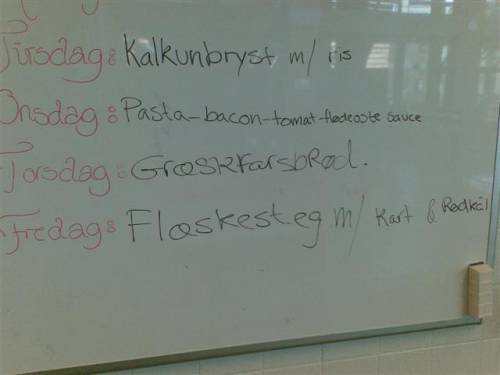 Tirsdag: Kalkunbryst m/ ris
Onsdag: Pasta-bacon-tomat-flødeoste sauce
Torsdag: Græsk Farsbrød.
Fredag: Flæskesteg m/ Kart & Rødkål